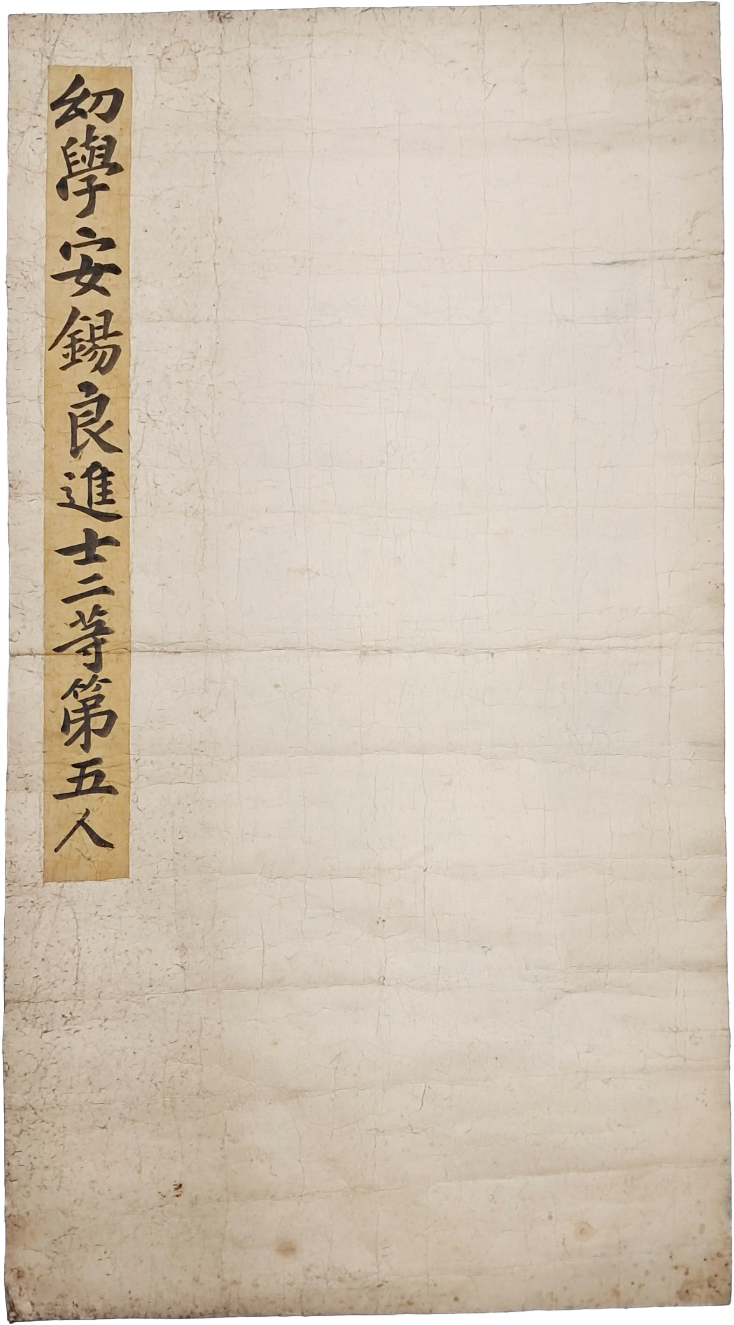 幼學安錫良進士二等第五人